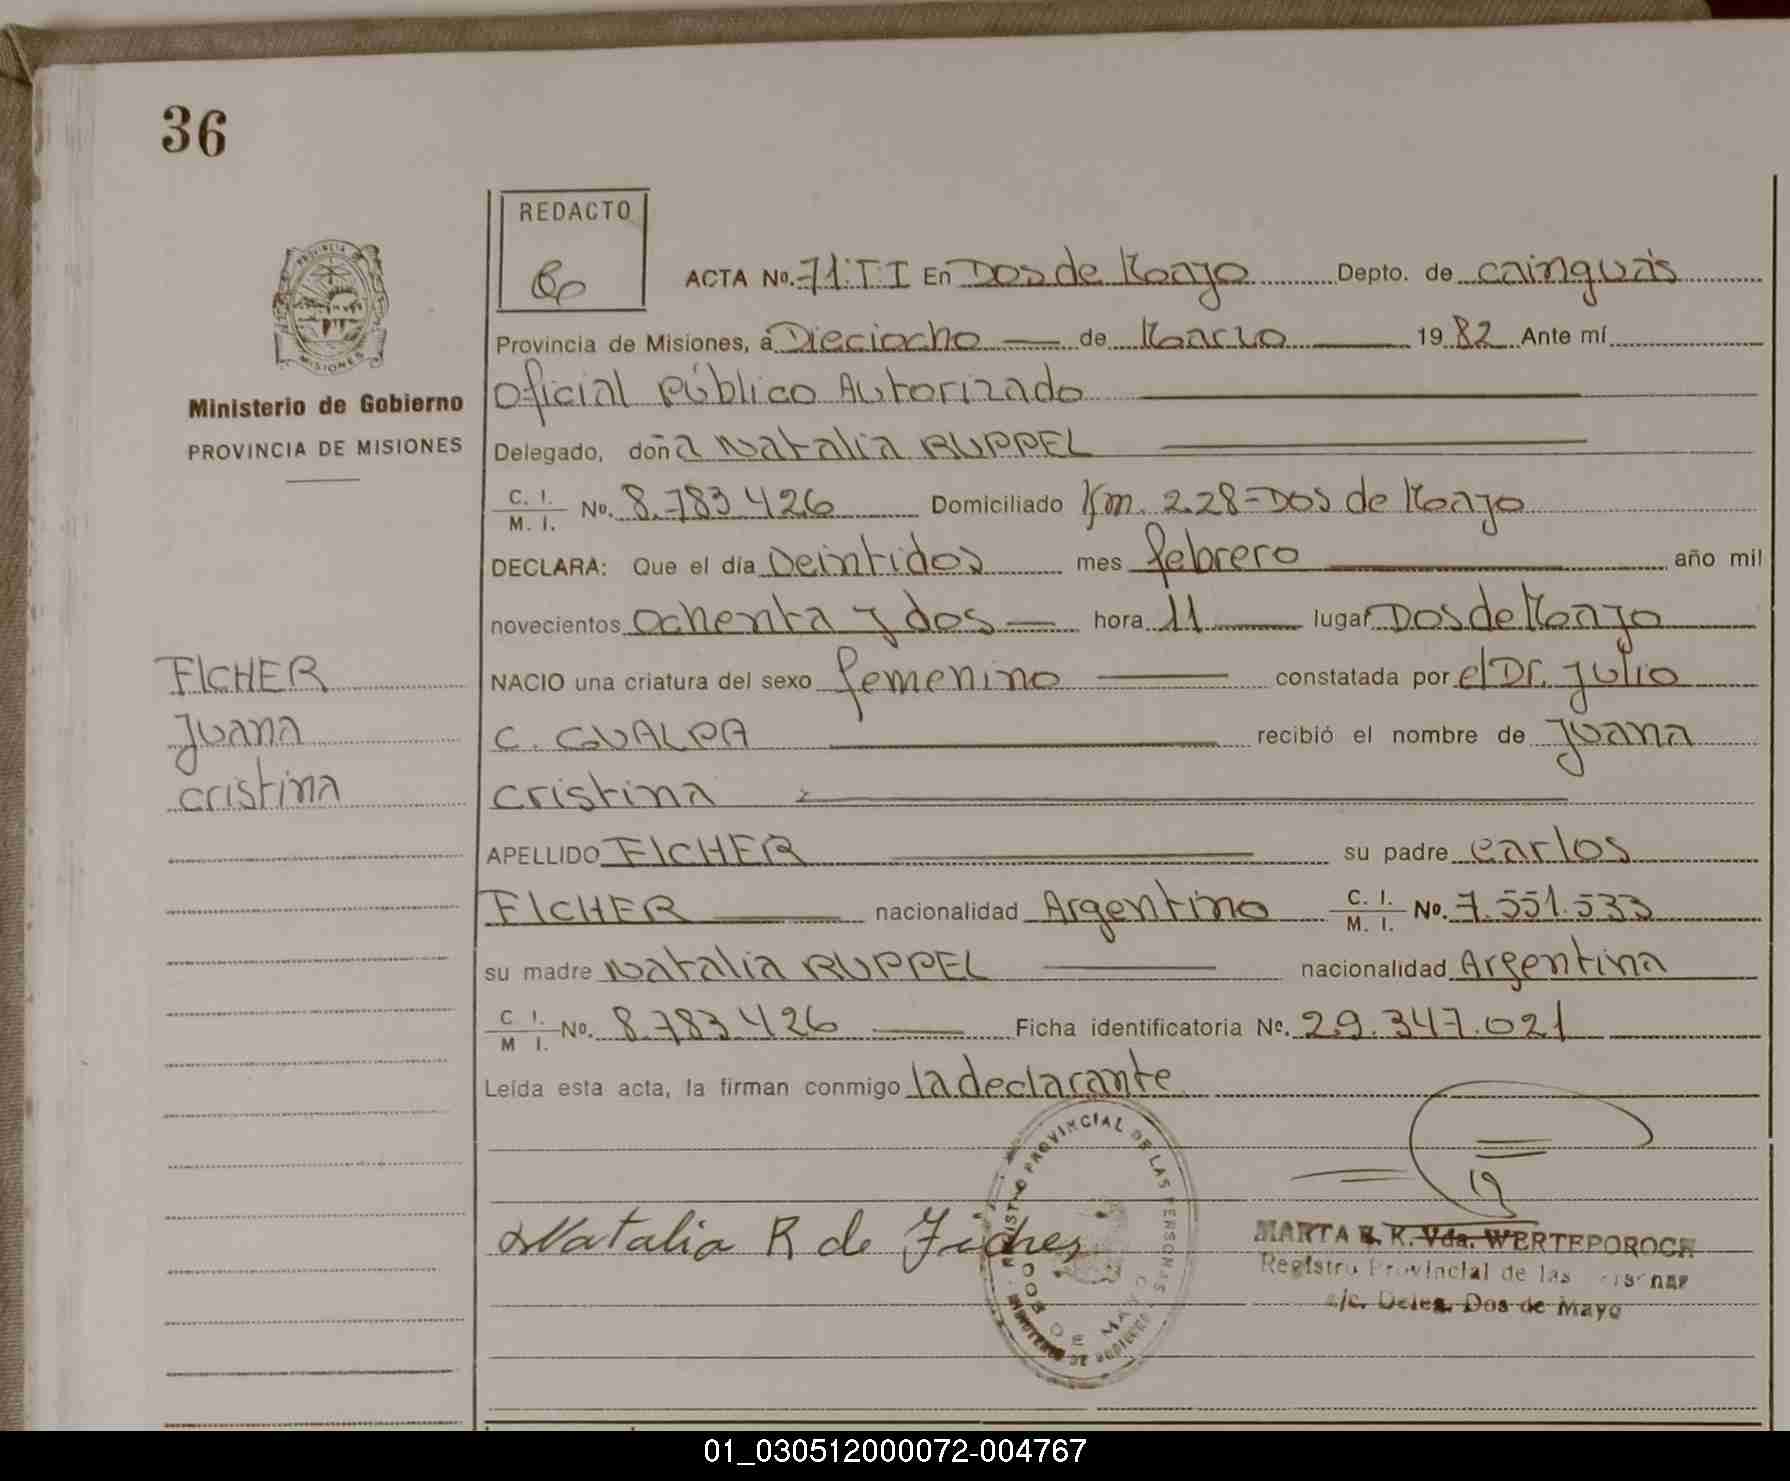 36
REDACTO
ACTA No. 71:TI En Dos de Mayo Depto. de cainguás
Provincia de Misiones, á Dieciocho de Marzo 1982 Ante mí
oficial Público Autorizado
Ministerio de Gobierno
PROVINCIA DE MISIONES
Delegado, doña Natalia RUPPEL
C. I.
M. I. No. 8.783426 Domiciliado Km. 228=Dos de Mayo
DECLARA: Que el día Veintidos mes febrero año mil
novecientos ochenta y dos hora 11 lugar Dos de Mayo
FICHER
Juana
cristina
NACIO una criatura del sexo femenino constatada por el Dr. Julio
C. GUALPA recibió el nombre de Juana
cristina
APELLIDO FICHER su padre carlos
FICHER nacionalidad Argentino C. I.
M. I. No. 7.551.533
su madre Natalia RUPPEL nacionalidad Argentina
C I.
M I. No. 8.783426 Ficha identificatoria Nº. 29.347.021
Leída esta acta, la firman conmigo la declarante
PROVINCIAL DE LAS PERSONAS
DE MAYO
Natalia R de Ficher
MARTA K. Vda. WERTEPOROCH
Registro Provincial de las
a/c. Deleg. Dos de Mayo
PROVINCIA DE
MISIONES
01_030512000072-004767